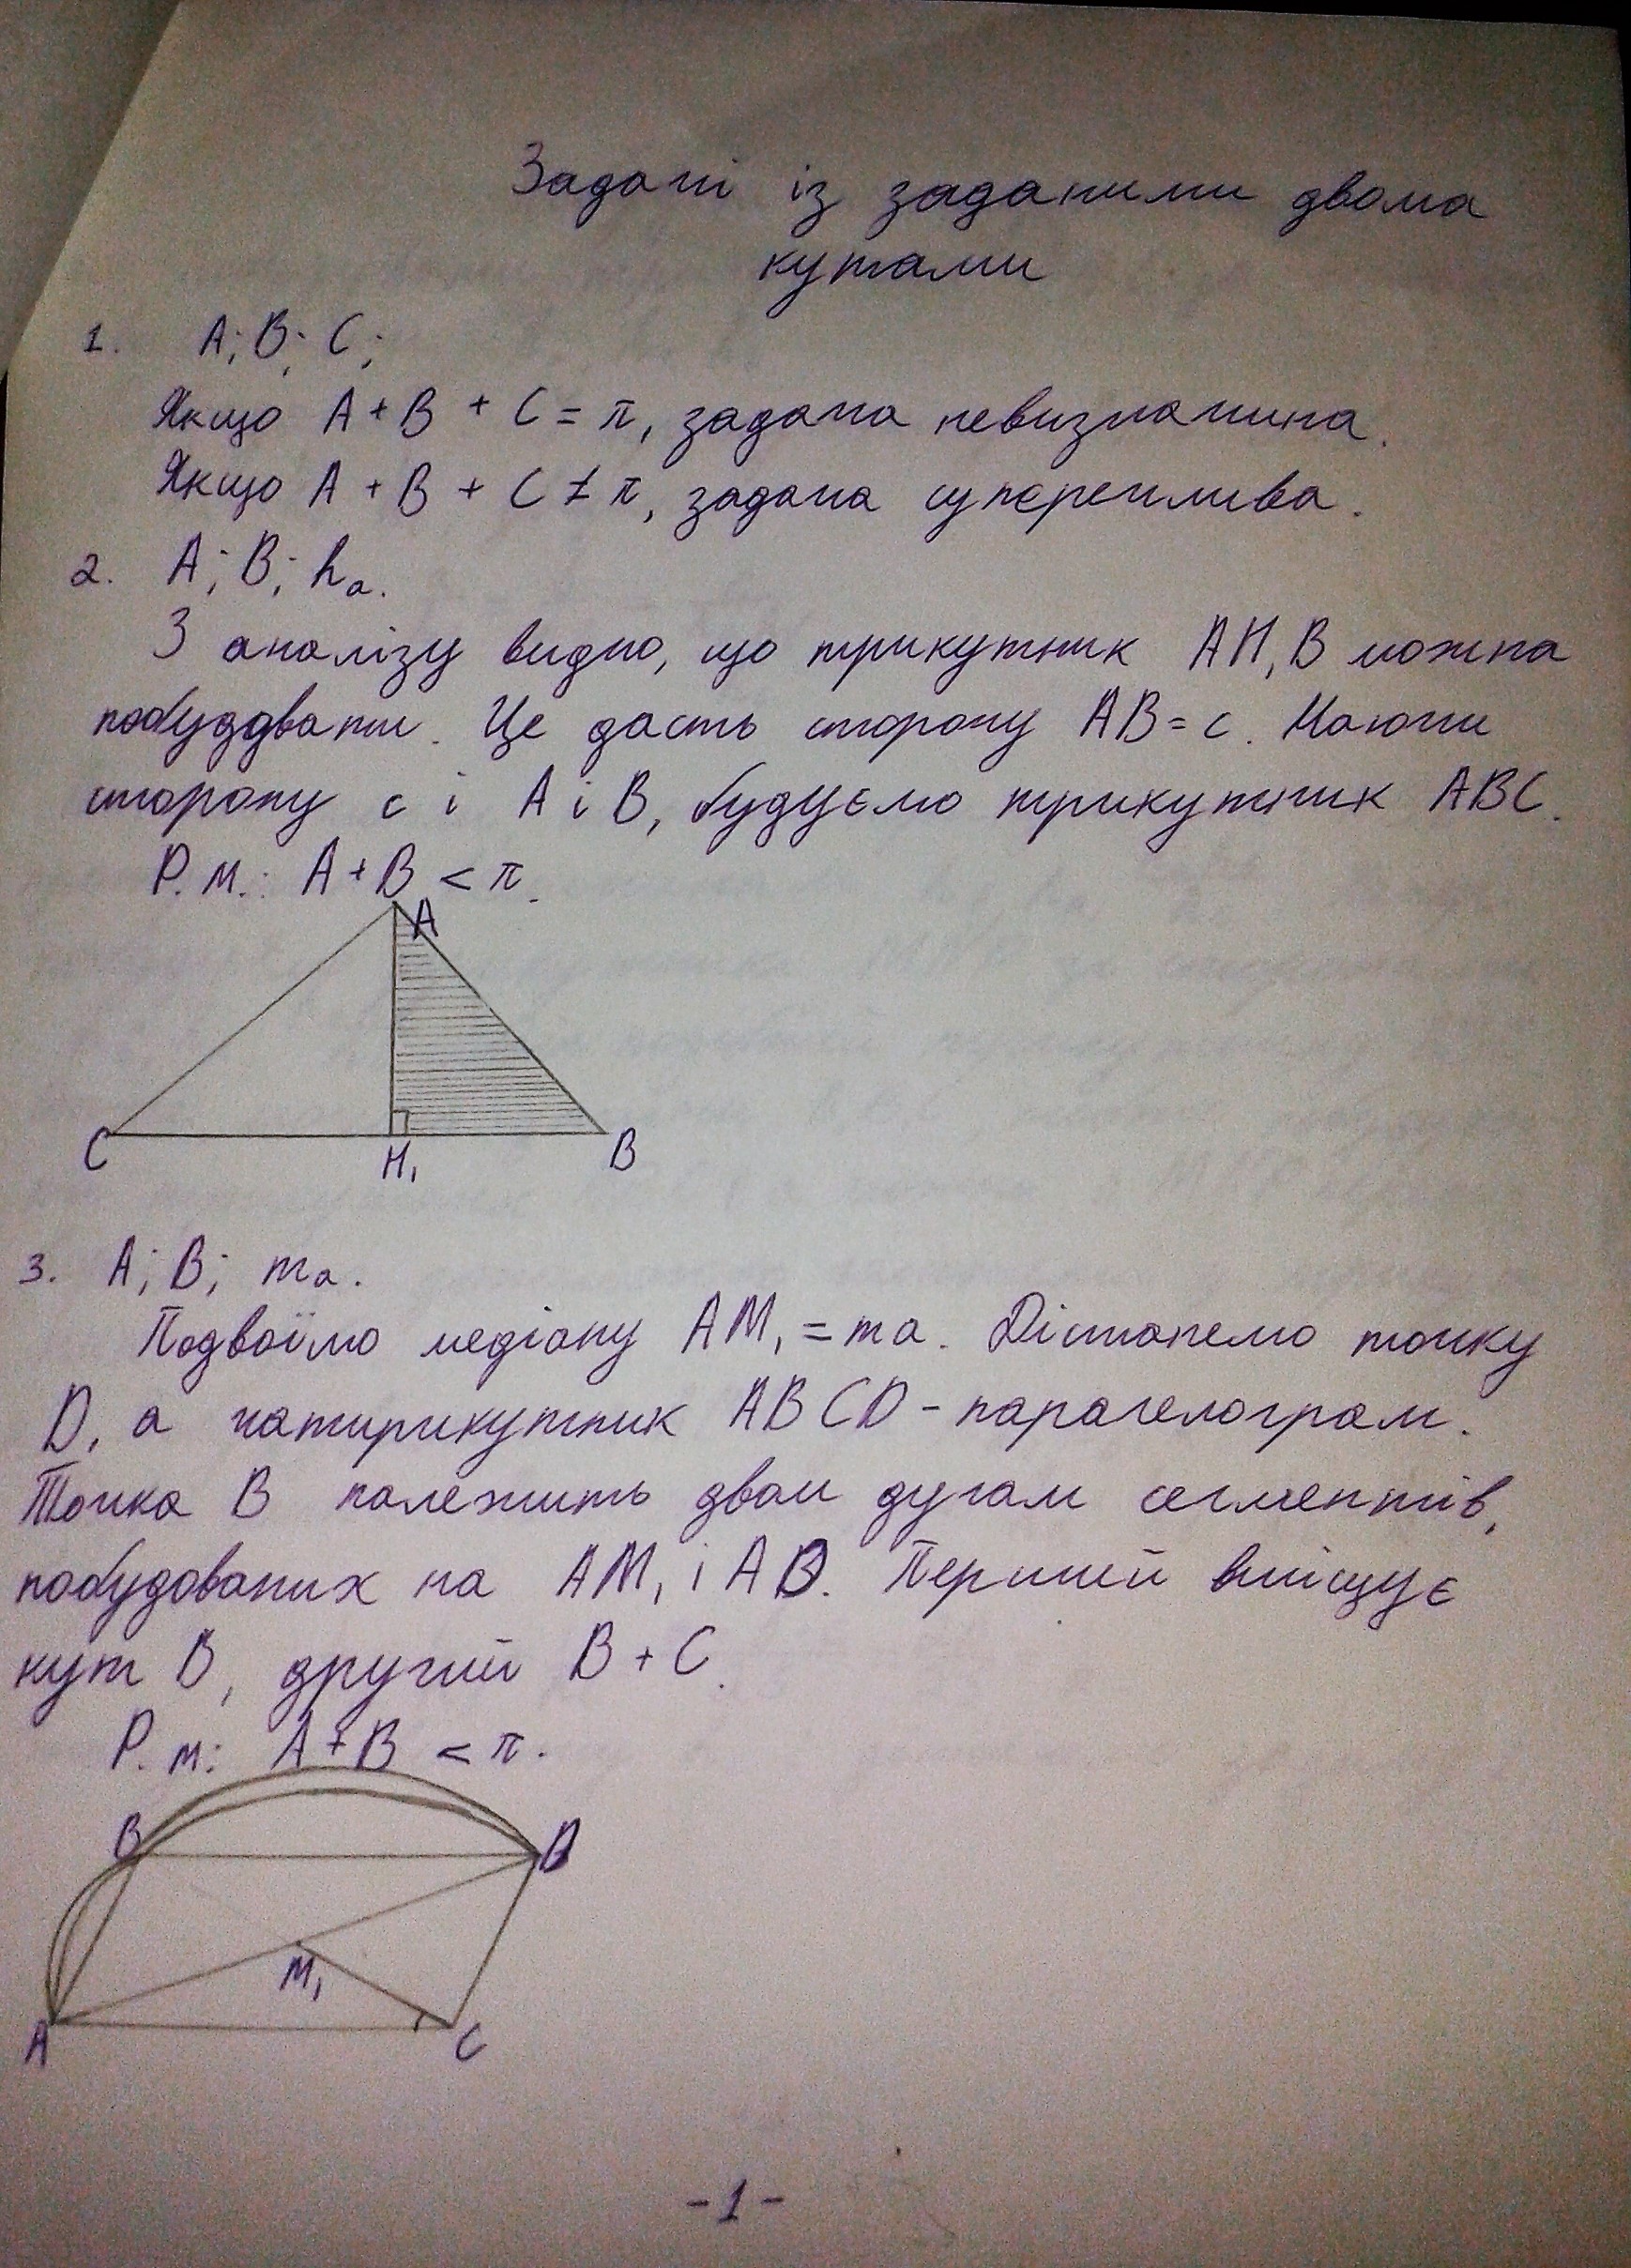 Задачі із заданими двома
кутами
1. A; B; C;
Якщо A + B + C = π, задача невизначина.
Якщо A + B + C ≠ π, задача суперечлива.
2. A; B; hₐ.
З аналізу видно, що трикутник AH₁B можна
побудувати. Це дасть сторону AB = c. Маючи
сторону c і A і B, будуємо трикутник ABC.
Р.м.: A + B < π.
A
C H₁ B
3. A; B; mₐ.
Подвоїмо медіану AM₁ = mₐ. Дістанемо точку
D, а чатирикутник ABCD - паралелограм.
Точка B належить двом дугам сегментів,
побудованих на AM₁ і AD. Перший вміщує
кут B, другий B + C.
Р.м: A + B < π.
B D
M₁
A C
- 1 -